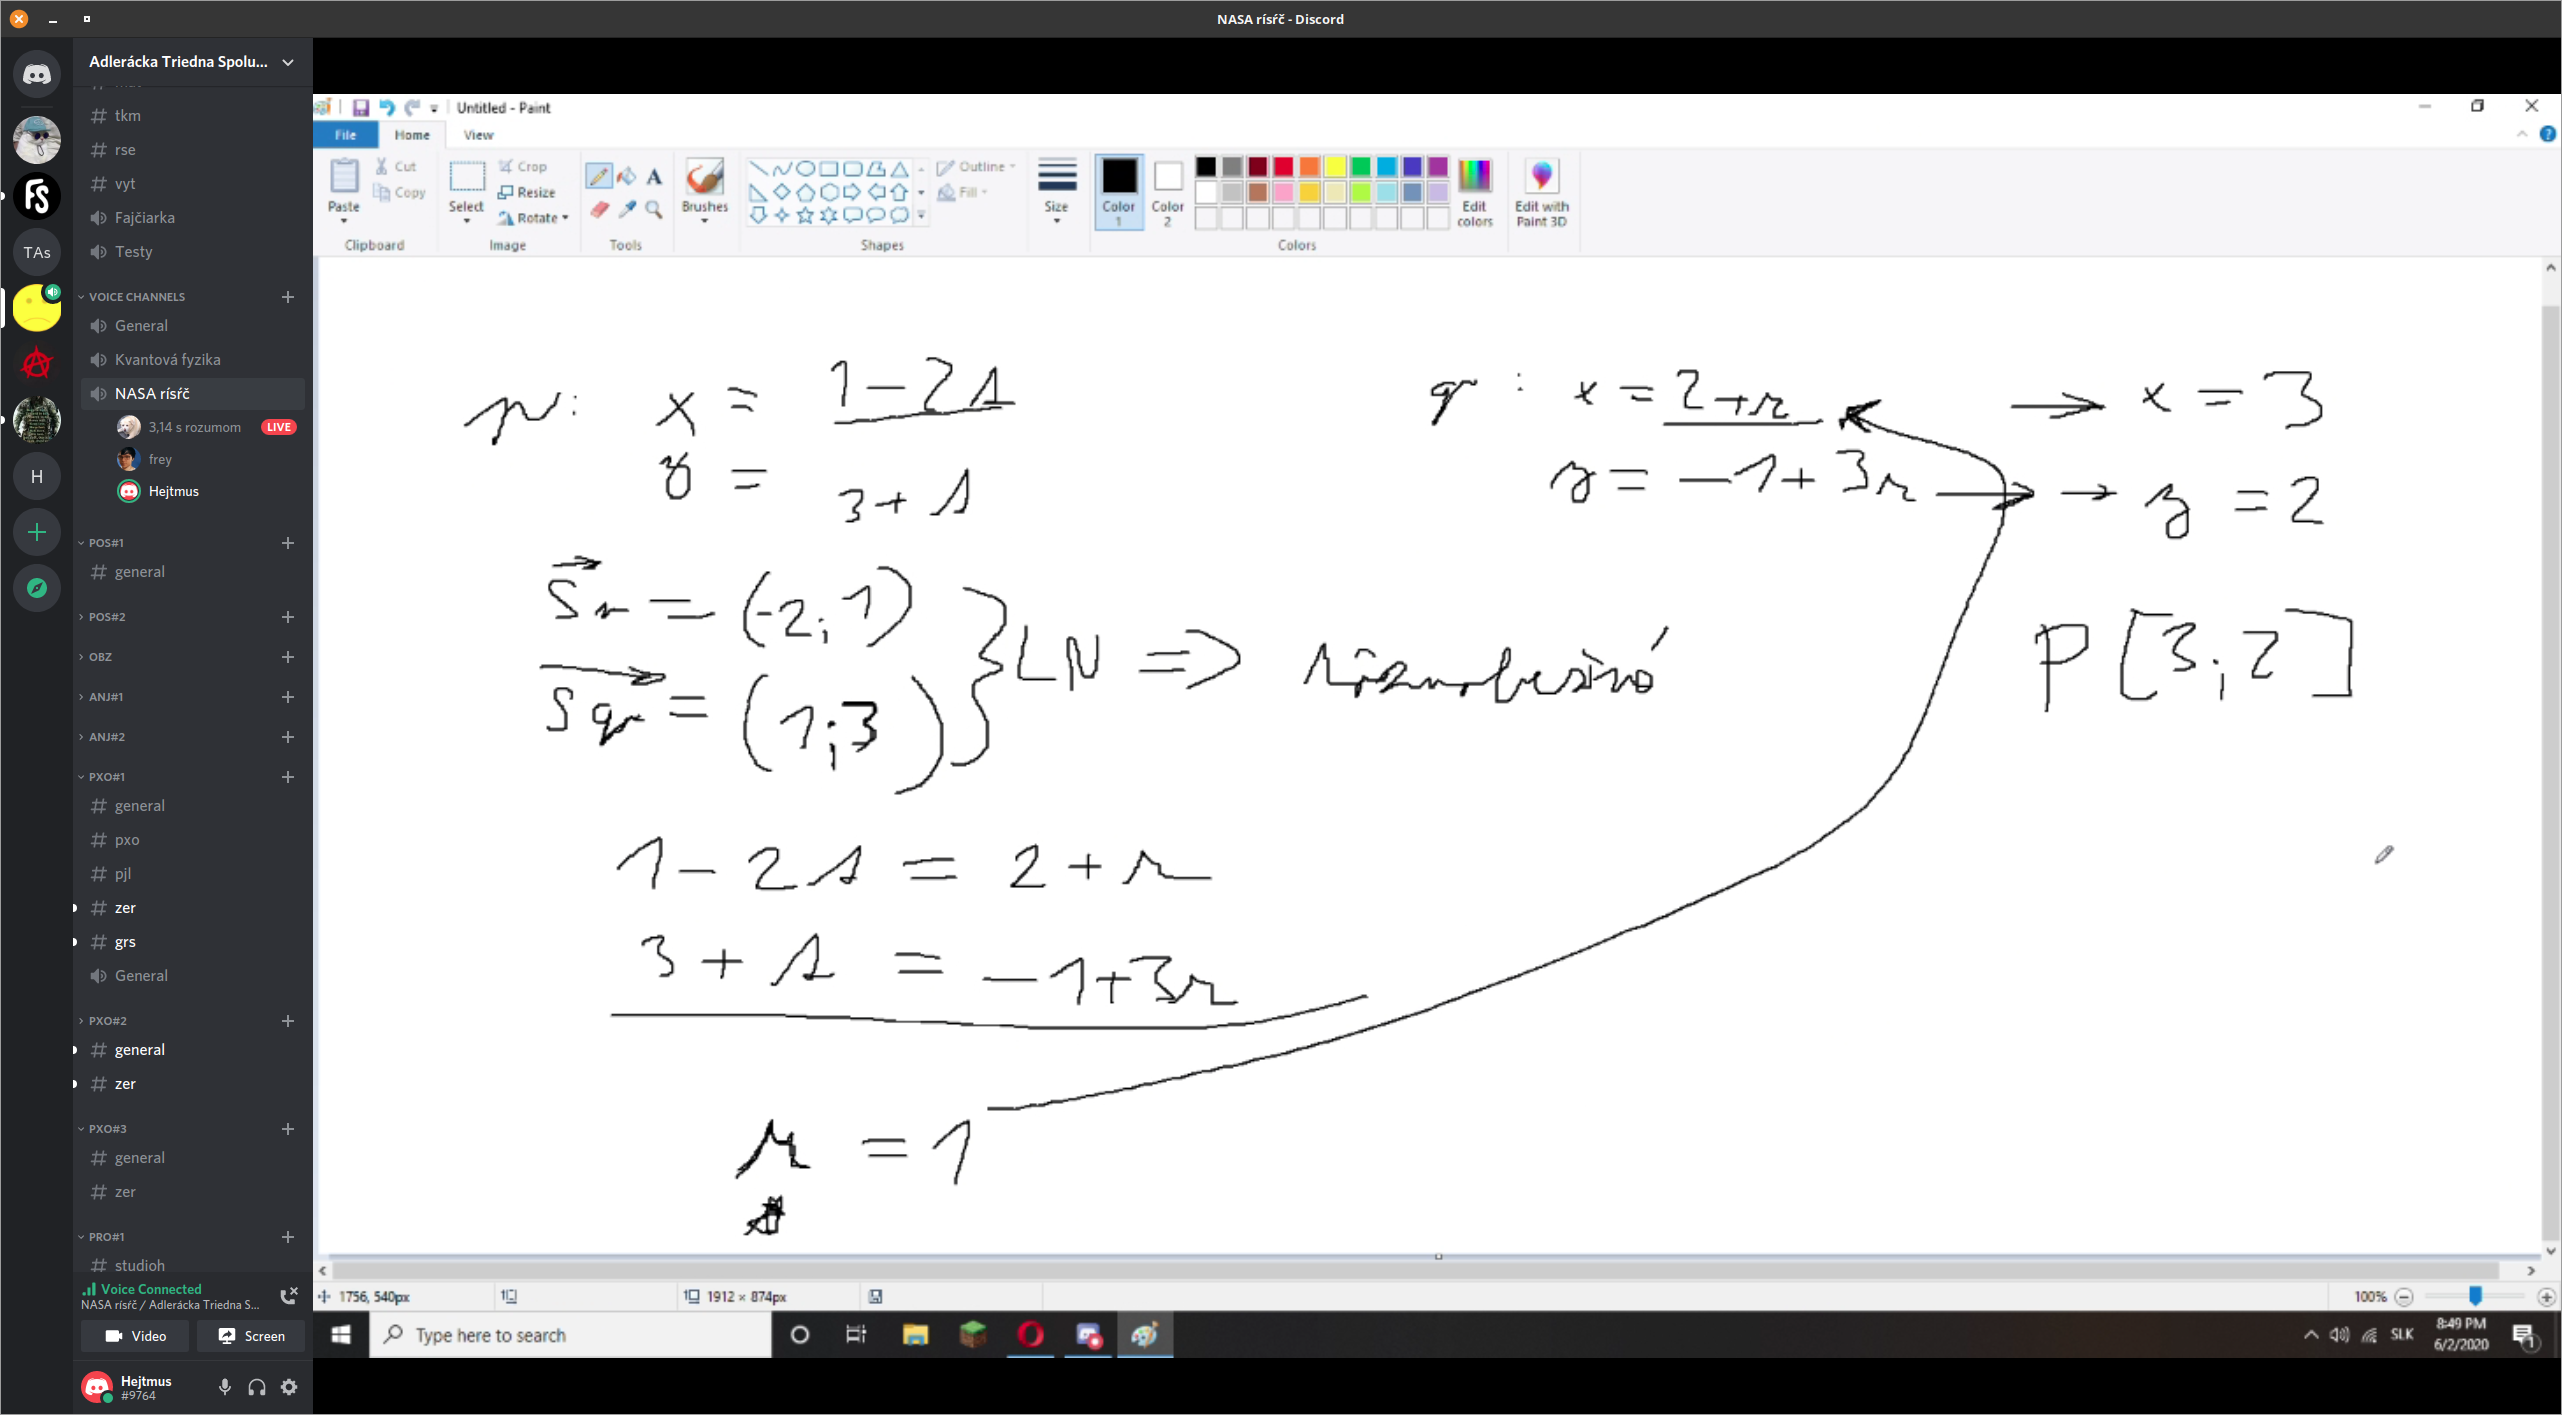 NASA rísŕč - Discord
Adlerácka Triedna Spolu...
# tkm
# rse
# vyt
Fajčiarka
Testy
VOICE CHANNELS
General
Kvantová fyzika
NASA rísŕč
3,14 s rozumom LIVE
frey
Hejtmus
POS#1
# general
POS#2
OBZ
ANJ#1
ANJ#2
PXO#1
# general
# pxo
# pjl
# zer
# grs
General
PXO#2
# general
# zer
PXO#3
# general
# zer
PRO#1
# studioh
Voice Connected
NASA rísŕč / Adlerácka Triedna S...
Video Screen
Hejtmus
#9764
TAs
H
Untitled - Paint
File Home View
Paste Cut Copy Clipboard
Select Crop Resize Rotate Image
A Tools
Brushes
Outline Fill Shapes
Size
Color 1 Color 2 Edit colors Colors
Edit with Paint 3D
p: x = 1 - 2s
y = 3 + s
q : x = 2 + r → x = 3
y = -1 + 3r → → y = 2
= (-2; 1)
Sq = (1; 3)
LN ⇒ P [3; 2]
1 - 2s = 2 + r
3 + s = -1 + 3r
r = 1
1756, 540px
1912 × 874px
100%
Type here to search
SLK
8:49 PM
6/2/2020
1